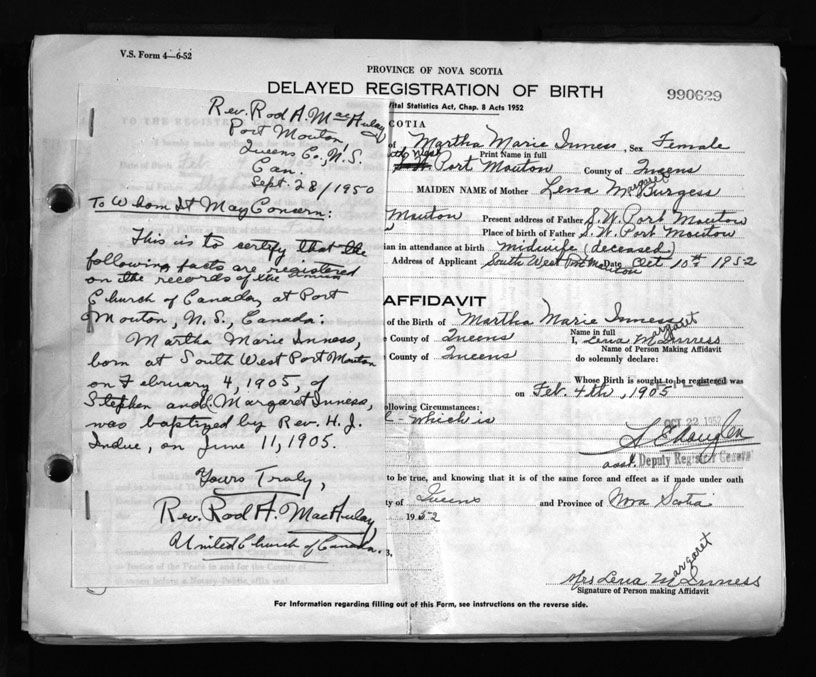 V.S. Form 4—6-52
PROVINCE OF NOVA SCOTIA
DELAYED REGISTRATION OF BIRTH
990629
Vital Statistics Act, Chap. 8 Acts 1952
Rev. Rod A. MacAulay
Port Mouton
Queens Co., N.S.
Can.
Sept. 28/1950
To Whom It May Concern:
This is to certify that the
following facts are registered
on the records of the United
Church of Canada, at Port
Mouton, N.S., Canada:
Martha Marie Inness,
born at South West Port Mouton
on February 4, 1905, of
Stephen and L. Margaret Inness,
was baptized by Rev. H. J.
Indue, on June 11, 1905.
Yours Truly,
Rev. Rod A. MacAulay,
United Church of Canada.
SCOTIA
of Martha Marie Inness, Sex Female
Print Name in full
Port Mouton County of Queens
MAIDEN NAME of Mother Lena Margaret Burgess
Mouton Present address of Father S.W. Port Mouton
Place of birth of Father S.W. Port Mouton
ian in attendance at birth midwife (deceased)
Address of Applicant South West Port Mouton Date Oct 10th 1952
AFFIDAVIT
of the Birth of Martha Marie Inness
Name in full
County of Queens I, Lena Margaret Inness
Name of Person Making Affidavit
County of Queens do solemnly declare:
Whose Birth is sought to be registered was
on Feb. 4th, 1905
ollowing Circumstances:
which is
OCT 22 1952
asst. Deputy Registrar General
to be true, and knowing that it is of the same force and effect as if made under oath
ty of Queens and Province of Nova Scotia
1952
Mrs Lena Margaret Inness
Signature of Person making Affidavit
For Information regarding filling out of this Form, see instructions on the reverse side.